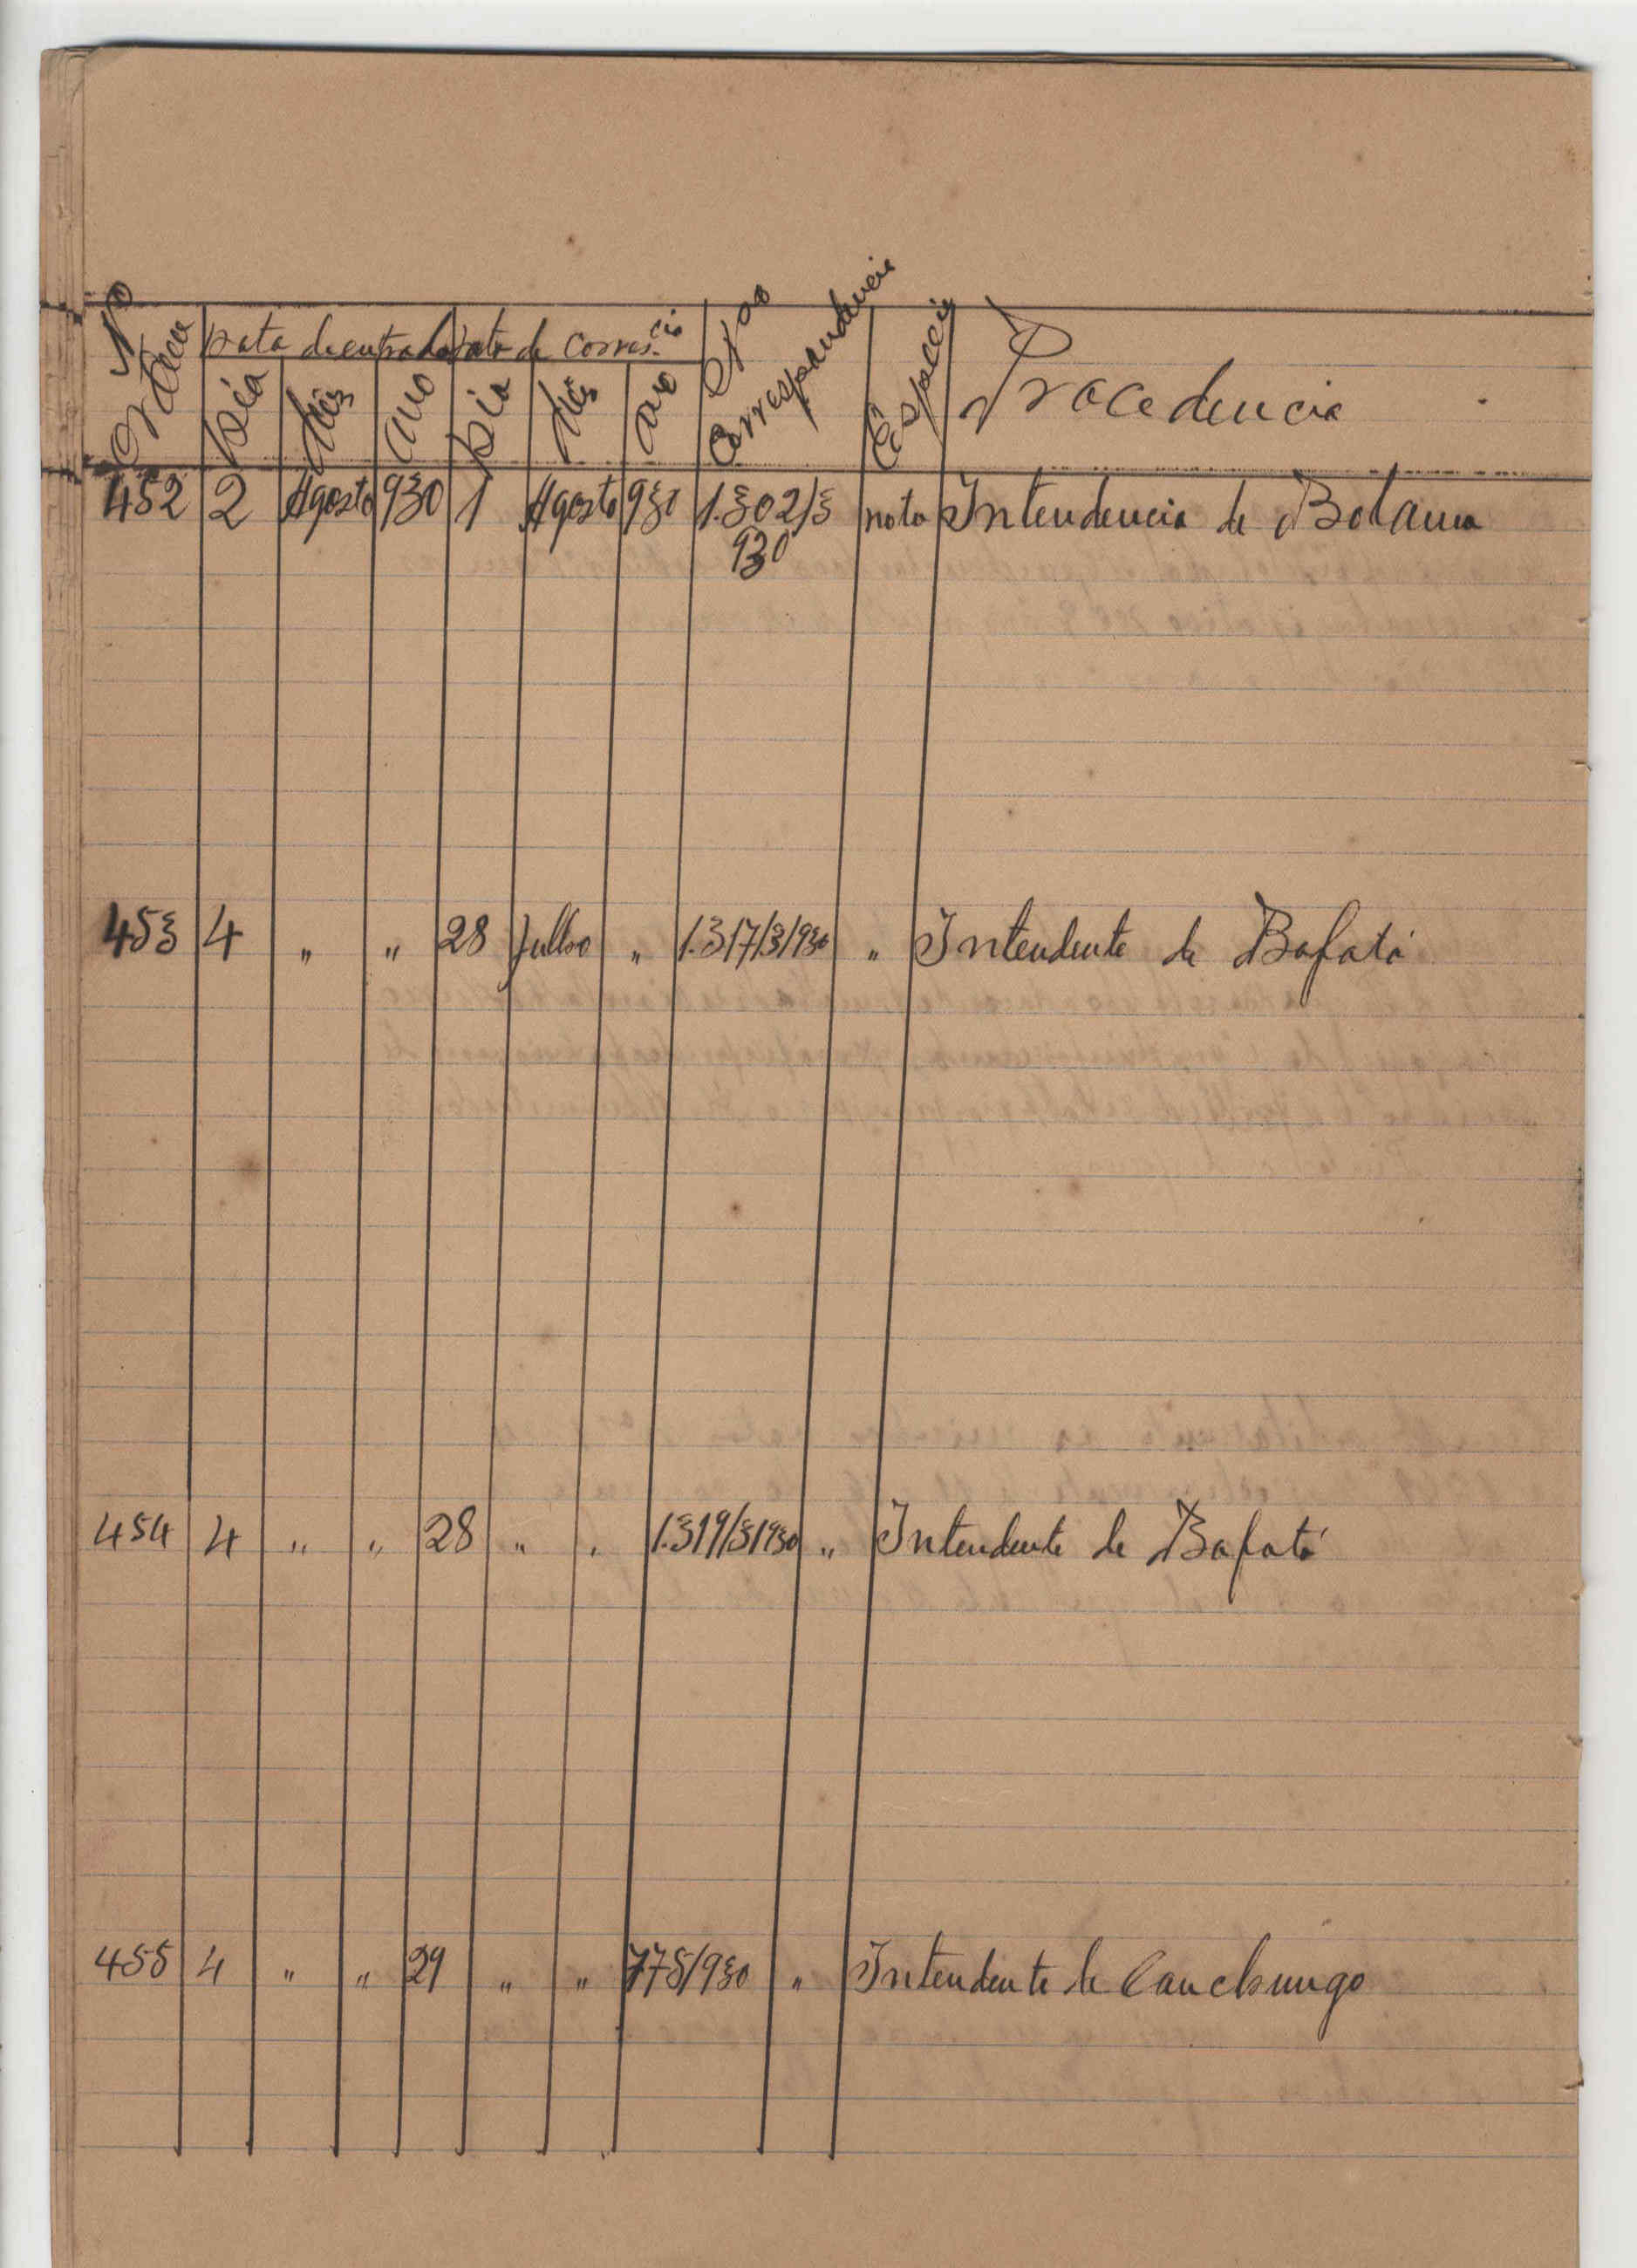 Nº Ordem Data de entrada Data de corres.cia Nºº Correspondencia Especie Procedencia
Dia Mês Ano Dia Mês Ano
452 2 Agosto 930 1 Agosto 930 1.302/3 nota Intendencia de Bolama
930
453 4 " " 28 Julho " 1.317/3/930 " Intendente de Bafatá
454 4 " " 28 " " 1.319/3/930 " Intendente de Bafatá
455 4 " " 29 " " 775/930 " Intendente de Canchungo